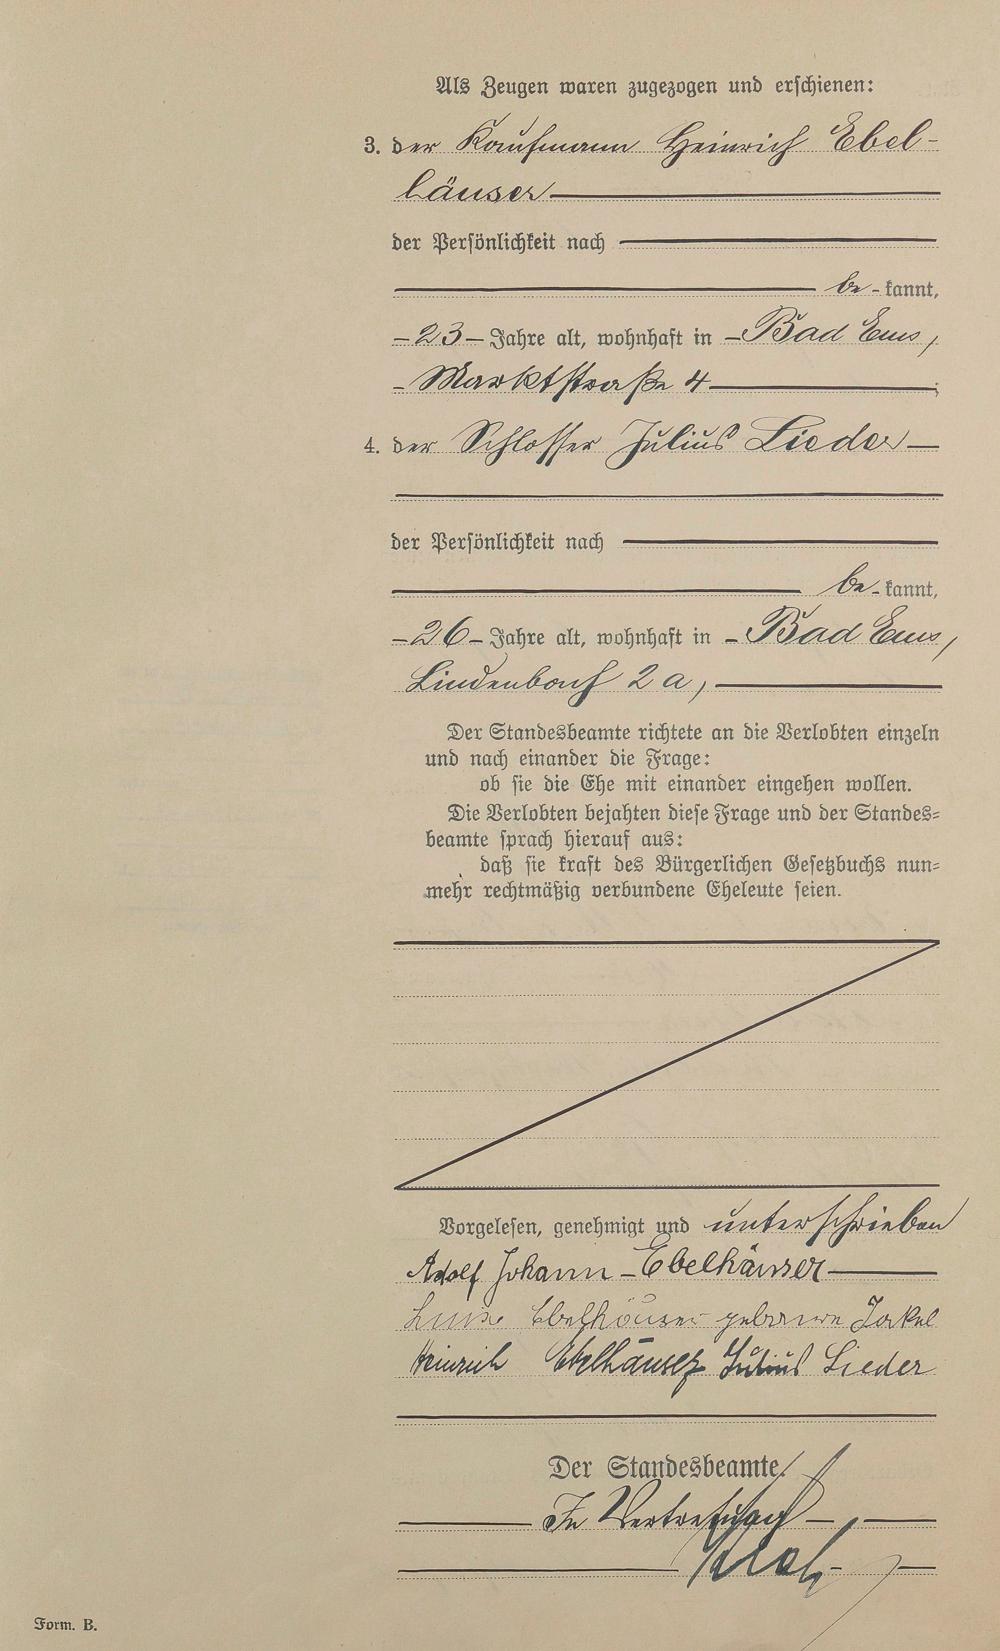 Als Zeugen waren zugezogen und erschienen:
3. der Kaufmann Heinrich Ebel-
häuser
der Persönlichkeit nach
be - kannt,
- 23 - Jahre alt, wohnhaft in - Bad Ems,
- Marktstraße 4 ;
4. der Schlosser Julius Lieder
der Persönlichkeit nach
be - kannt,
- 26 - Jahre alt, wohnhaft in - Bad Ems,
Lindenbach 2 a,
Der Standesbeamte richtete an die Verlobten einzeln
und nach einander die Frage:
ob sie die Ehe mit einander eingehen wollen.
Die Verlobten bejahten diese Frage und der Standes=
beamte sprach hierauf aus:
daß sie kraft des Bürgerlichen Gesetzbuchs nun=
mehr rechtmäßig verbundene Eheleute seien.
Vorgelesen, genehmigt und unterschrieben
Adolf Johann - Ebelhäuser
Luise Ebelhäuser geborene Jakel
Heinrich Ebelhäuser Julius Lieder
Der Standesbeamte.
In Vertretung
Form. B.